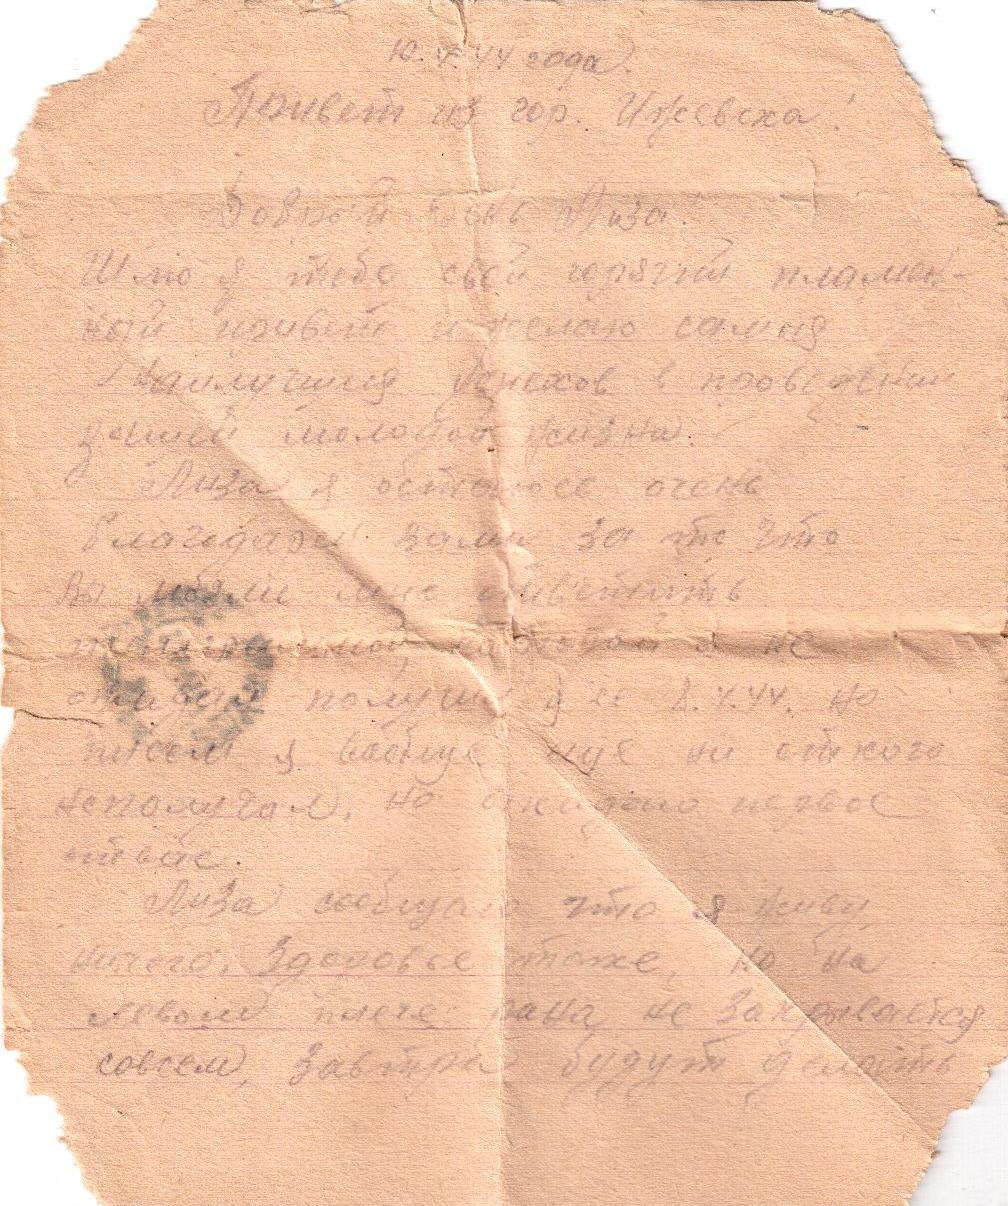 10.4.44 года.
Привет из гор. Ижевска!
Добрый день Лиза.
Шлю я тебе свой горячий пламен-
ный привет и желаю самыя
Наилучшия Успехов в проведении
вашей молодой жизни.
Лиза я остаюсь очень
благодарен вами за то что
Вы мне ответить
я не
ожидал получил я ее 8.4.44. но
писем я вообще еще ни от кого
неполучал, но ожидаю первое
от вас.
Лиза сообщаю что я живу
ничего, Здоровье тоже, но на
левом плече рана не Закрывается
совсем, Завтра будут делать